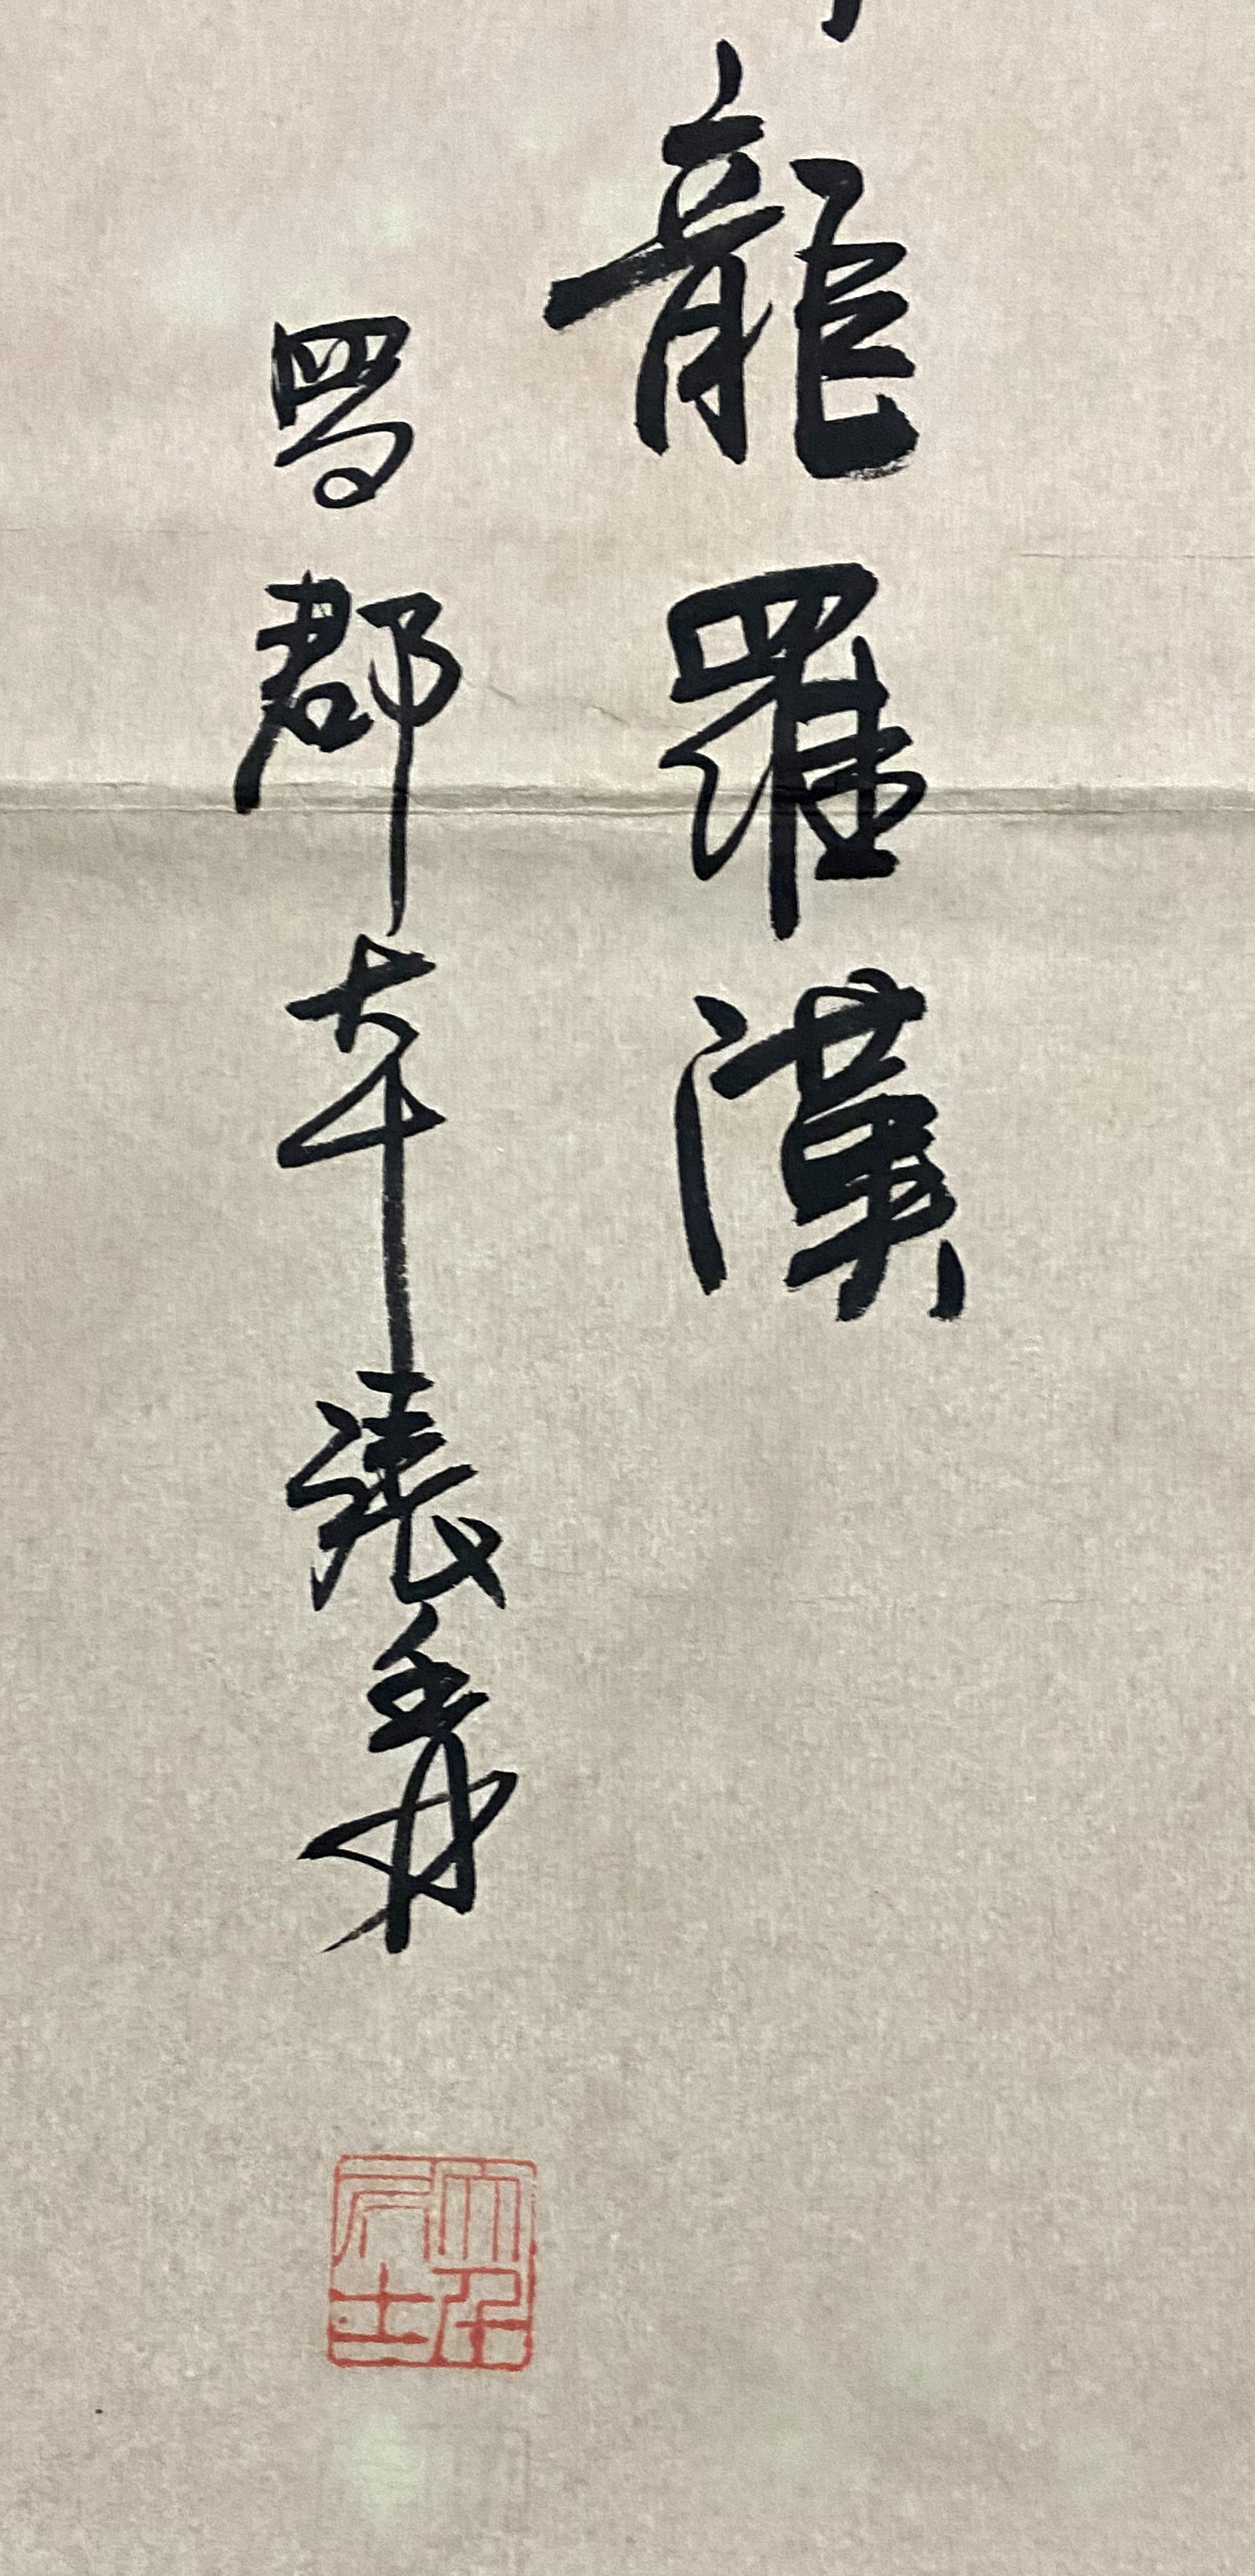 龍羅漢
蜀郡大千張爰
大千居士